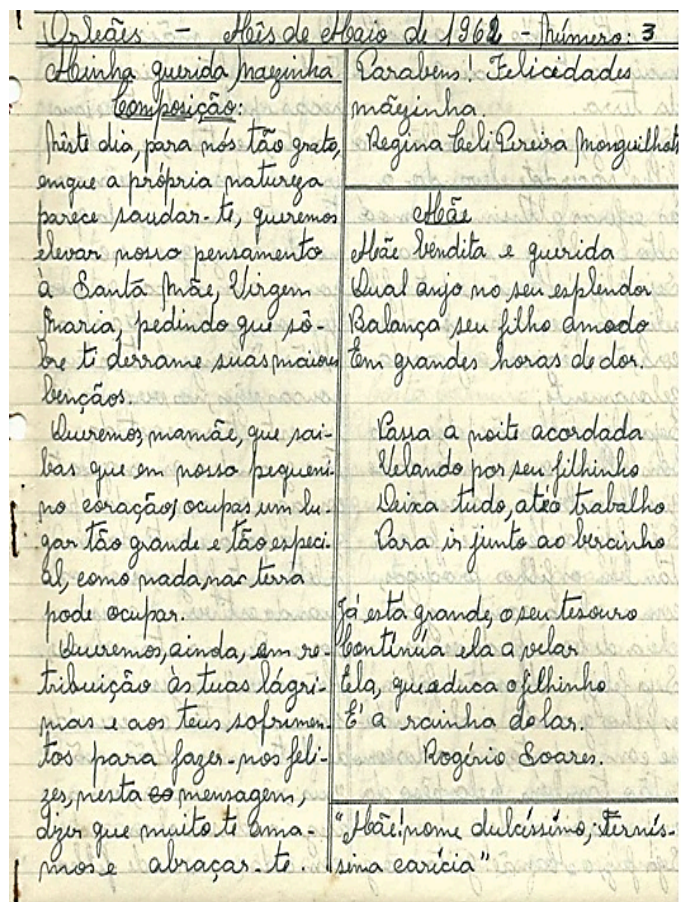 Orleães - Mês de Maio de 1962 - Número: 3
Minha querida mãezinha
Composição:
Nêste dia, para nós tão grato,
em que a própria natureza
parece saudar-te, queremos
elevar nosso pensamento
à Santa Mãe, Virgem
Maria, pedindo que sô-
bre ti derrame suas maiores
bençãos.
Queremos, mamãe, que sai-
bas que em nosso pequeni-
no coração, ocupas um lu-
gar tão grande e tão especi-
al, como nada, na terra
pode ocupar.
Queremos, ainda, em re-
tribuição às tuas lágri-
mas e aos teus sofrimen-
tos para fazer-nos feli-
zes, nesta mensagem,
dizer que muito te ama-
mos e abraçar-te.
Parabens! Felicidades
mãezinha.
Regina Celi Pereira Monguilhott
Mãe
Mãe bendita e querida
Qual anjo no seu esplendor
Balança seu filho amado
Em grandes horas de dor.
Passa a noite acordada
Velando por seu filhinho
Deixa tudo, até o trabalho
Para ir junto ao bercinho
Já está grande, o seu tesouro
Continúa ela a velar
Ela, que educa o filhinho
E' a rainha do lar.
Rogério Soares.
"Mãe! nome dulcíssimo, ternís-
sima carícia"